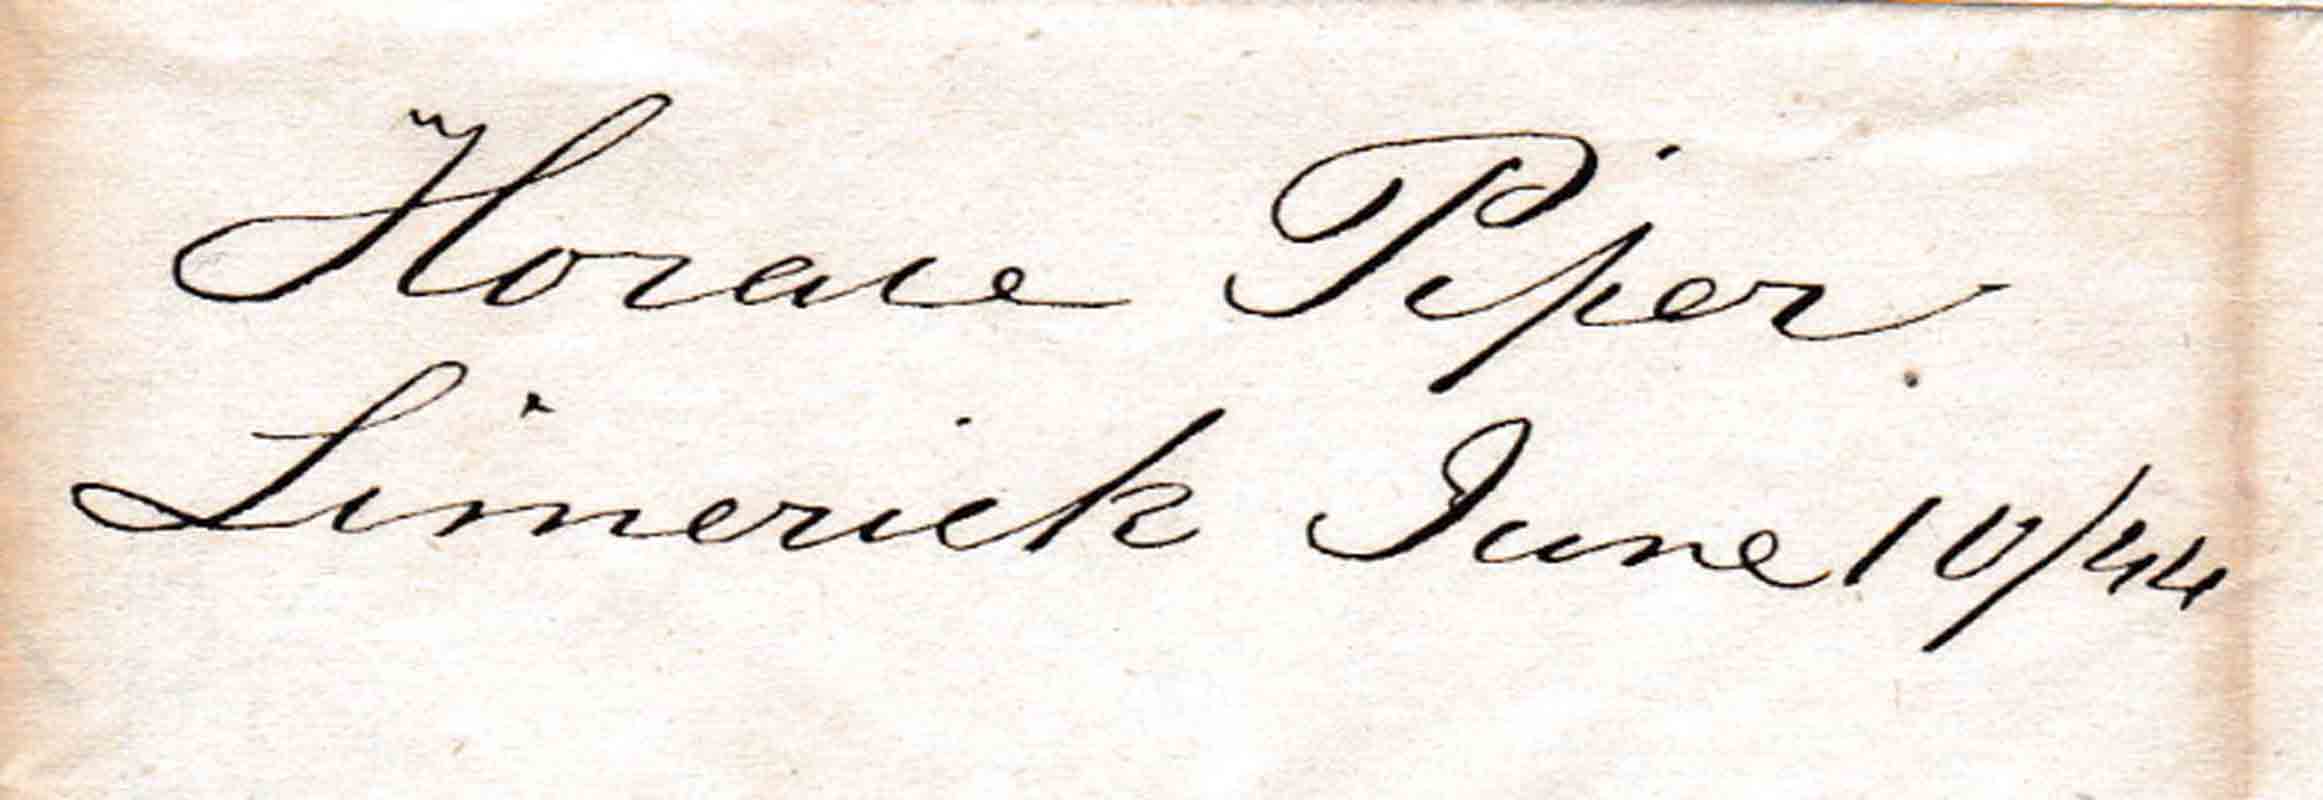 Horace Piper
Limerick June 10/44